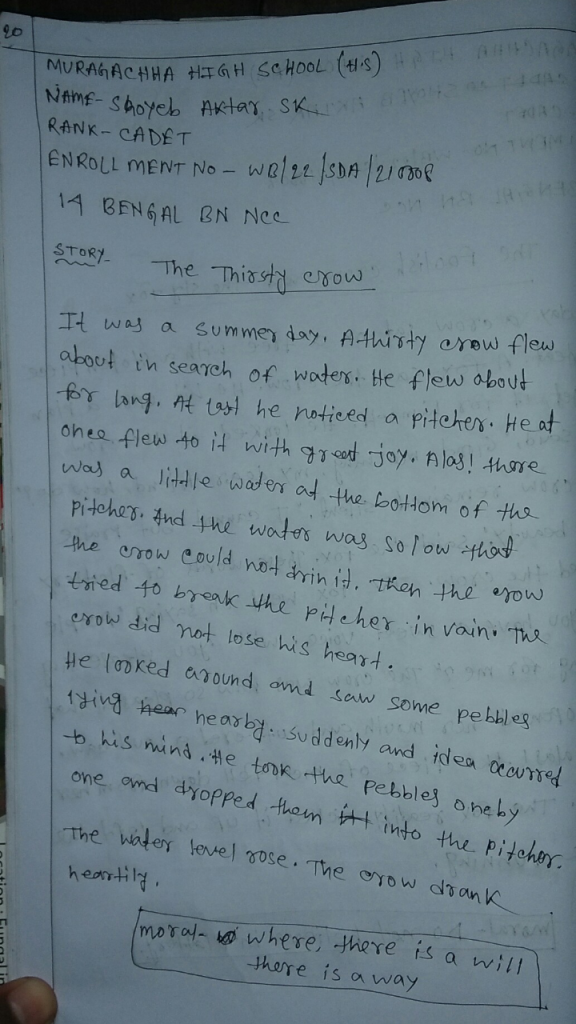 20
MURAGACHHA HIGH SCHOOL (H.S)
NAME- Shoyeb Aktar SK
RANK- CADET
ENROLLMENT NO - WB/22/SDA/210808
14 BENGAL BN NCC
STORY- The Thirsty crow
It was a summer day. A thirty crow flew
about in search of water. He flew about
for long. At last he noticed a pitcher. He at
once flew to it with great joy. Alas! there
was a little water at the bottom of the
pitcher. And the water was so low that
the crow could not drin it. Then the crow
tried to break the pitcher in vain. The
crow did not lose his heart.
He looked around and saw some pebbles
lying near nearby. Suddenly and idea occurred
to his mind. He took the pebbles one by
one and dropped them into the pitcher.
The water level rose. The crow drank
heartily.
moral- where, there is a will
there is a way